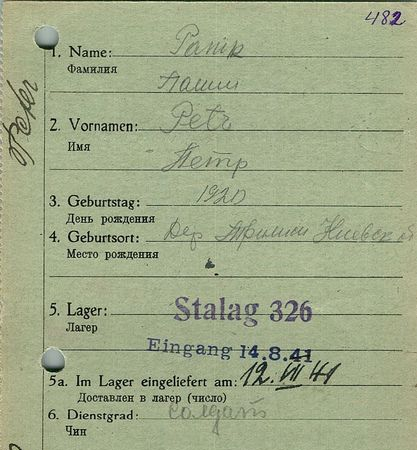 482
Peter
1. Name:
Фамилия
2. Vornamen: Petr
Имя Петр
3. Geburtstag: 1920
День рождения
4. Geburtsort: Дер
Место рождения
5. Lager: Stalag 326
Лагер
Eingang 14.8.41
5a. Im Lager eingeliefert am: 12. VII 41
Доставлен в лагер (число)
6. Dienstgrad: солдат
Чин